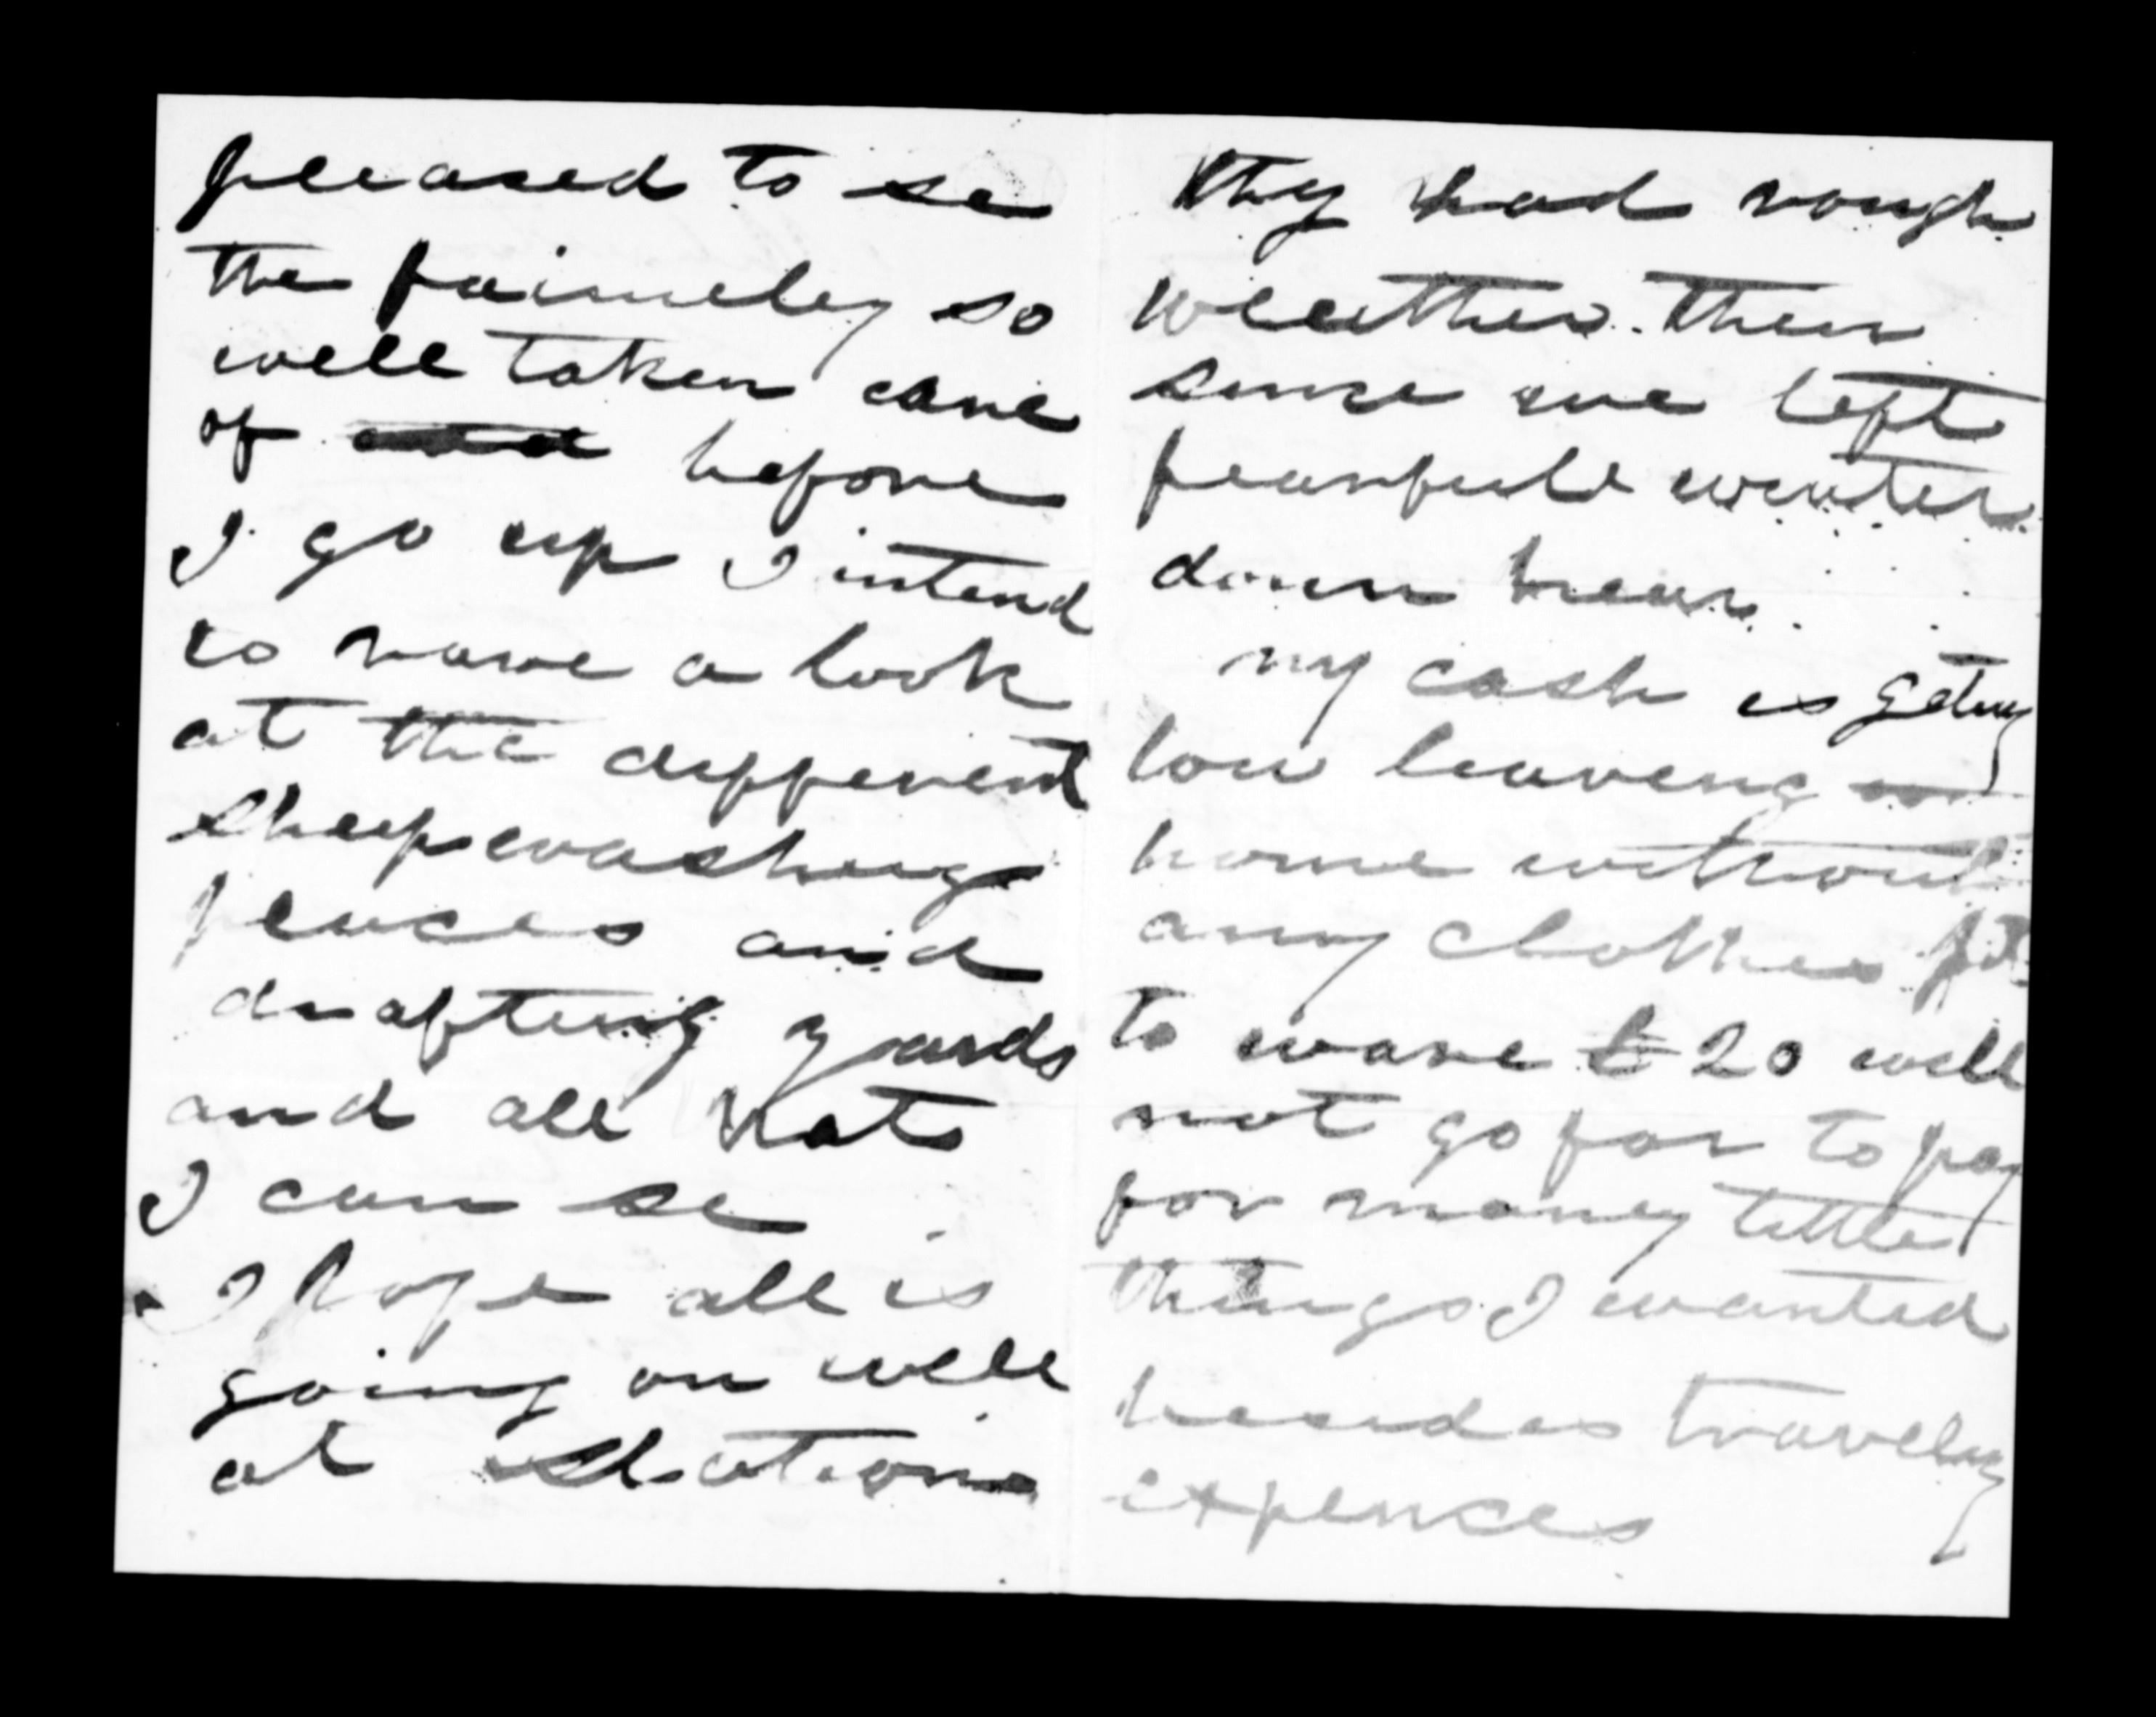 pleased to se
the faimeley so
well taken care
of before
I go up I intend
to have a look
at the different
sheepwashing
places and
drafting yards
and all that
I can se
I hope all is
going on well
at station
they had rough
weather ther
since we left
fearfull winter
down hear
my cash is geting
low leaveng
home without
any clothes fit
to ware £20 will
not go far to pay
for maney little
things I wanted
besides traveling
expences